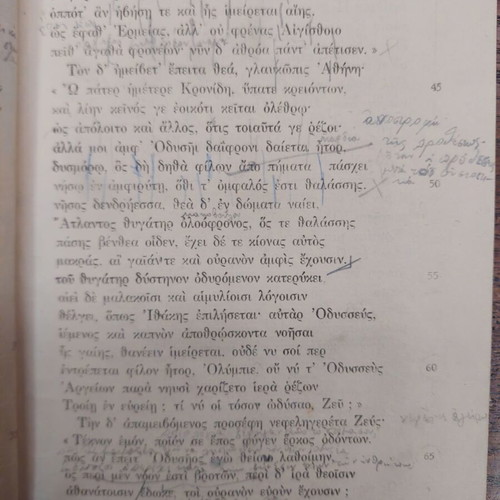 ὁππότ' ἂν ἡβήσῃ τε καὶ ἧς ἱμείρεται αἴης.
ὣς ἔφαθ' Ἑρμείας, ἀλλ' οὐ φρένας Αἰγίσθοιο
πεῖθ' ἀγαθὰ φρονέων· νῦν δ' ἁθρόα πάντ' ἀπέτισεν. »
Τὸν δ' ἠμείβετ' ἔπειτα θεά, γλαυκῶπις Ἀθήνη·
« Ὦ πάτερ ἡμέτερε Κρονίδη, ὕπατε κρειόντων, 45
καὶ λίην κεῖνός γε ἐοικότι κεῖται ὀλέθρῳ·
ὡς ἀπόλοιτο καὶ ἄλλος, ὅτις τοιαῦτά γε ῥέζοι·
ἀλλά μοι ἀμφ' Ὀδυσῆι δαΐφρονι δαίεται ἦτορ,
δυσμόρῳ, ὃς δὴ δηθὰ φίλων ἄπο πήματα πάσχει
νήσῳ ἐν ἀμφιρύτῃ, ὅθι τ' ὀμφαλός ἐστι θαλάσσης, 50
νῆσος δενδρήεσσα, θεὰ δ' ἐν δώματα ναίει,
Ἄτλαντος θυγάτηρ ὀλοόφρονος, ὅς τε θαλάσσης
πάσης βένθεα οἶδεν, ἔχει δέ τε κίονας αὐτὸς
μακράς, αἳ γαῖάν τε καὶ οὐρανὸν ἀμφὶς ἔχουσιν.
τοῦ θυγάτηρ δύστηνον ὀδυρόμενον κατερύκει 55
αἰεὶ δὲ μαλακοῖσι καὶ αἱμυλίοισι λόγοισιν
θέλγει, ὅπως Ἰθάκης ἐπιλήσεται· αὐτὰρ Ὀδυσσεύς,
ἱέμενος καὶ καπνὸν ἀποθρῴσκοντα νοῆσαι
ἧς γαίης, θανέειν ἱμείρεται. οὐδέ νυ σοί περ
ἐντρέπεται φίλον ἦτορ, Ὀλύμπιε. οὔ νύ τ' Ὀδυσσεὺς 60
Ἀργείων παρὰ νηυσὶ χαρίζετο ἱερὰ ῥέζων
Τροίῃ ἐν εὐρείῃ; τί νύ οἱ τόσον ὠδύσαο, Ζεῦ; »
Τὴν δ' ἀπαμειβόμενος προσέφη νεφεληγερέτα Ζεύς·
« Τέκνον ἐμόν, ποῖόν σε ἔπος φύγεν ἕρκος ὀδόντων.
πῶς ἂν ἔπειτ' Ὀδυσῆος ἐγὼ θείοιο λαθοίμην, 65
ὃς περὶ μὲν νόον ἐστὶ βροτῶν, περὶ δ' ἱρὰ θεοῖσιν
ἀθανάτοισιν ἔδωκε, τοὶ οὐρανὸν εὐρὺν ἔχουσιν;